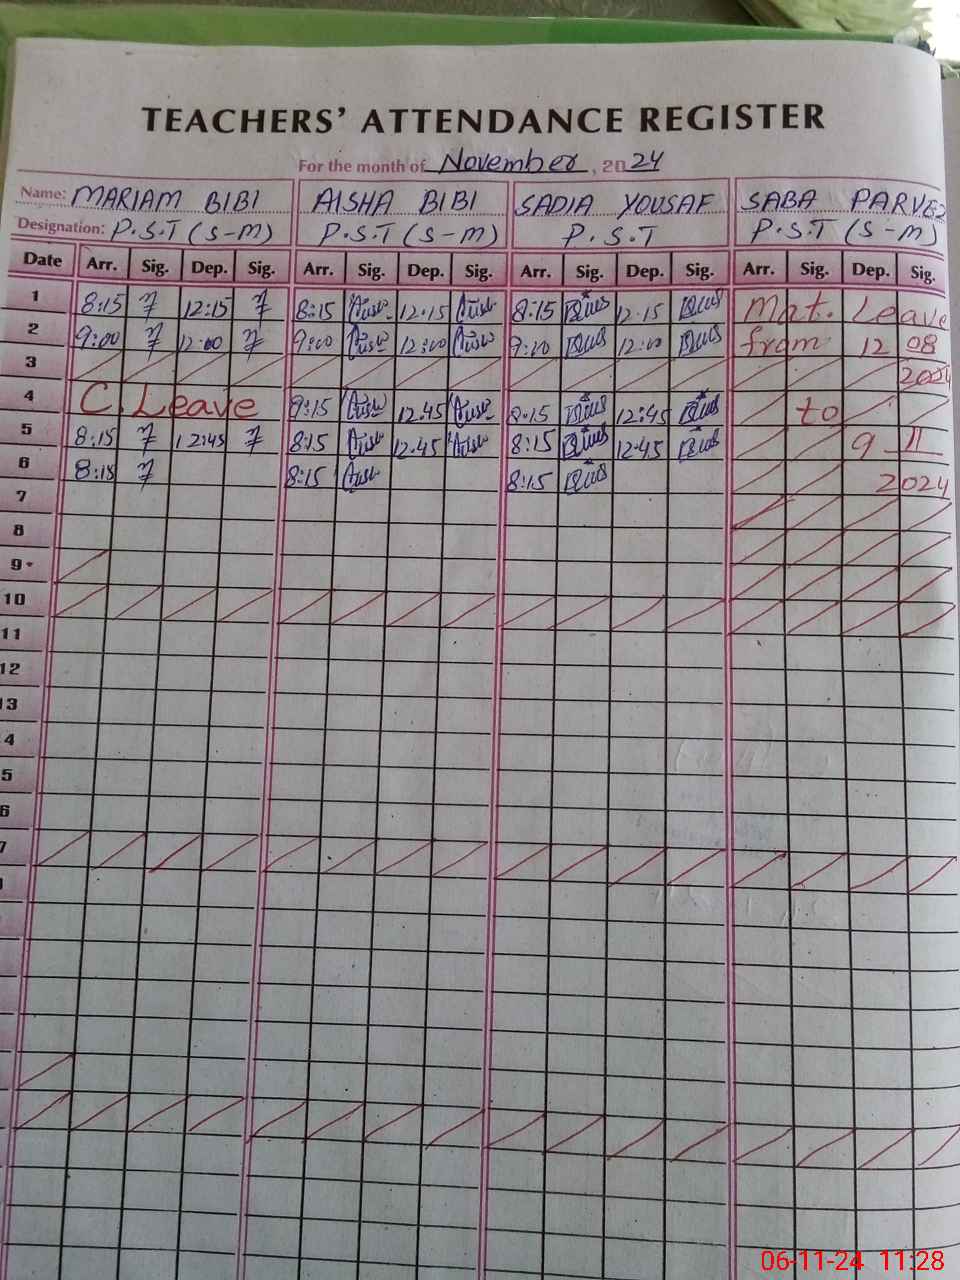 TEACHERS' ATTENDANCE REGISTER
For the month of November, 2024
Name: MARIAM BIBI AISHA BIBI SADIA YOUSAF SABA PARVEZ
Designation: P.S.T (S-M) P.S.T (S-M) P.S.T P.S.T (S-M)
Date Arr. Sig. Dep. Sig. Arr. Sig. Dep. Sig. Arr. Sig. Dep. Sig. Arr. Sig. Dep. Sig.
1 8:15 12:15 8:15 12.15 8:15 12.15 Mat. Leave
2 9:00 12:00 9:00 12:00 9:00 12:00 from 12 08
3 2024
4 C.Leave 9:15 12.45 8.15 12:45 to
5 8:15 12:45 8:15 12.45 8:15 12:45 9 11
6 8:15 8:15 8:15 2024
7
8
9
10
11
12
13
4
5
6
7
06-11-24 11:28